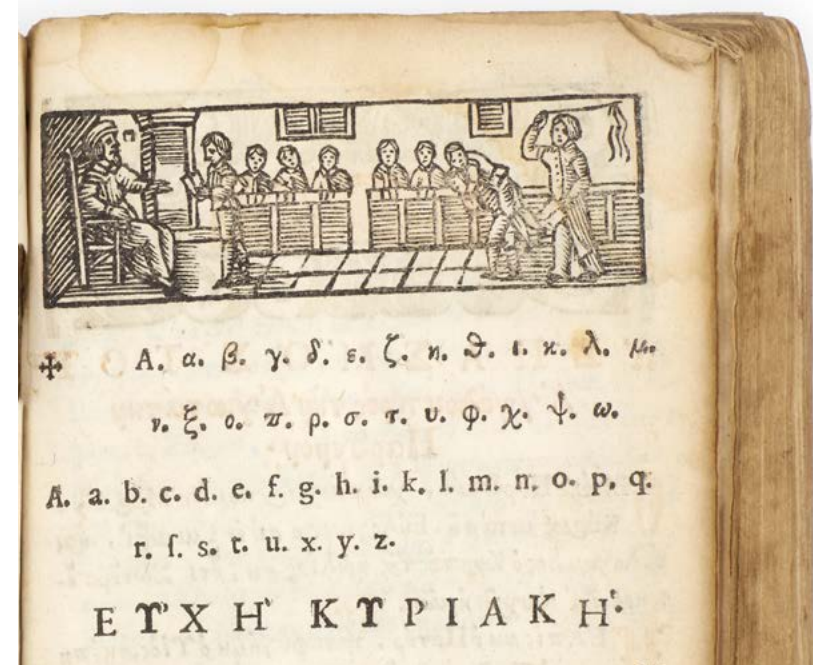 ✠ Α. α. β. γ. δ. ε. ζ. η. ϑ. ι. κ. λ. μ.
ν. ξ. ο. ϖ. ρ. σ. τ. υ. φ. χ. ψ. ω.
A. a. b. c. d. e. f. g. h. i. k. l. m. n. o. p. q.
r. ſ. s. t. u. x. y. z.
ΕΥ᾿ΧΗ` ΚΥΡΙΑΚΗ´.